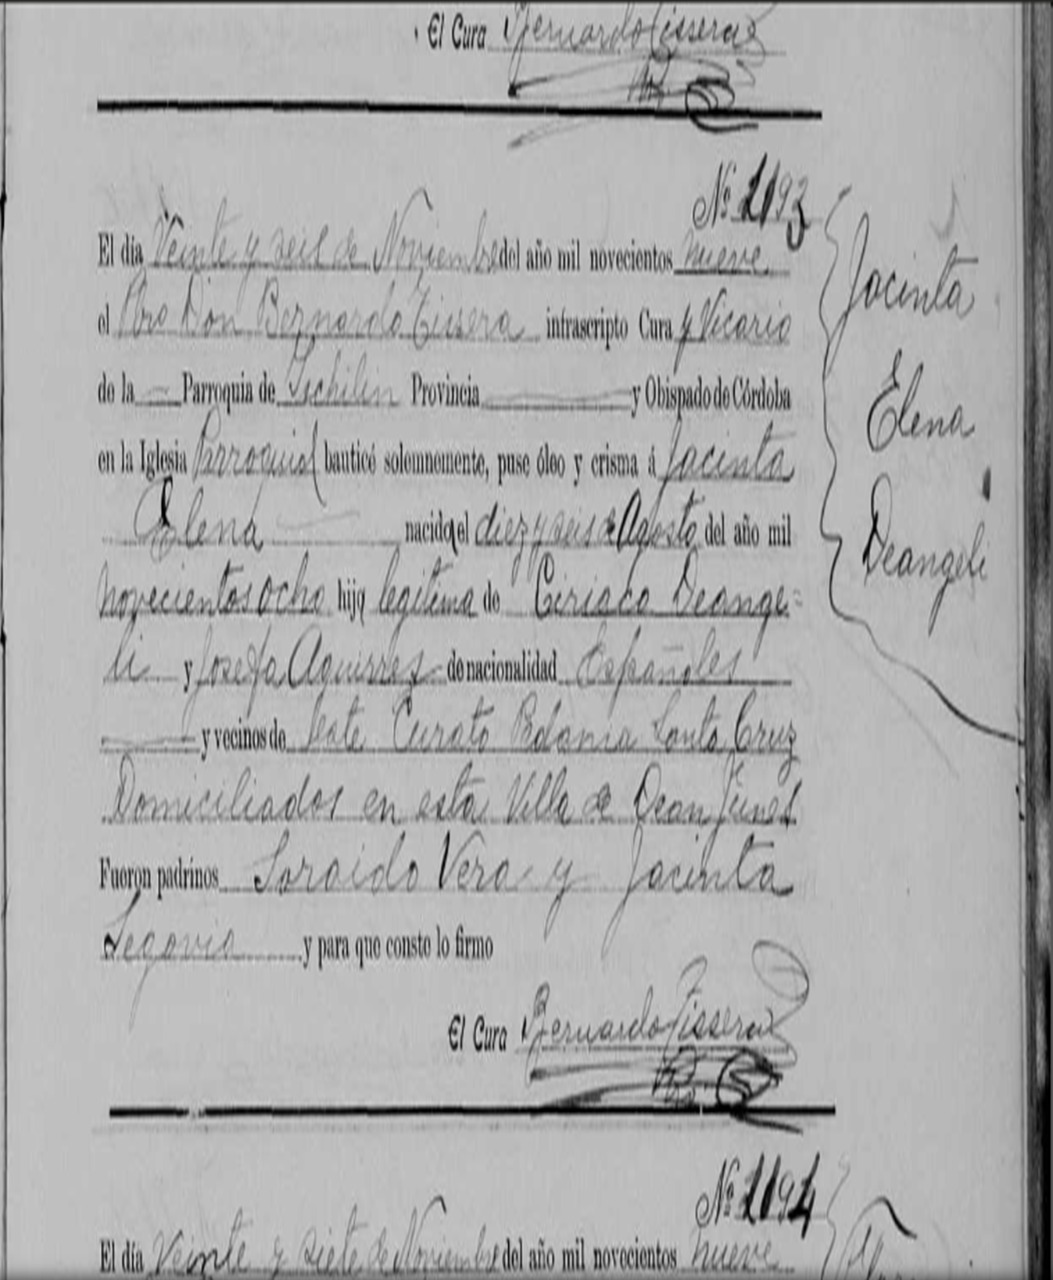 El Cura Bernardo Tissera
Nº 1193
El día Veinte y seis de Noviembre del año mil novecientos nueve
el Pbro Don Bernardo Tissera infrascripto Cura y Vicario
de la Parroquia de Ischilin Provincia y Obispado de Córdoba
en la Iglesia Parroquial bauticé solemnemente, puse óleo y crisma á Jacinta
Elena nacida el diez y seis de Agosto del año mil
novecientos ocho hija legitima de Ciriaco Deange=
li y Josefa Aguirres de nacionalidad Españoles
y vecinos de este Curato Santa Cruz
Domiciliados en esta Villa de Dean Funes
Fueron padrinos Vera y Jacinta
Segovia y para que conste lo firmo
El Cura Bernardo Tissera
Jacinta
Elena
Deangeli
Nº 1194
El día Veinte y siete de Noviembre del año mil novecientos nueve